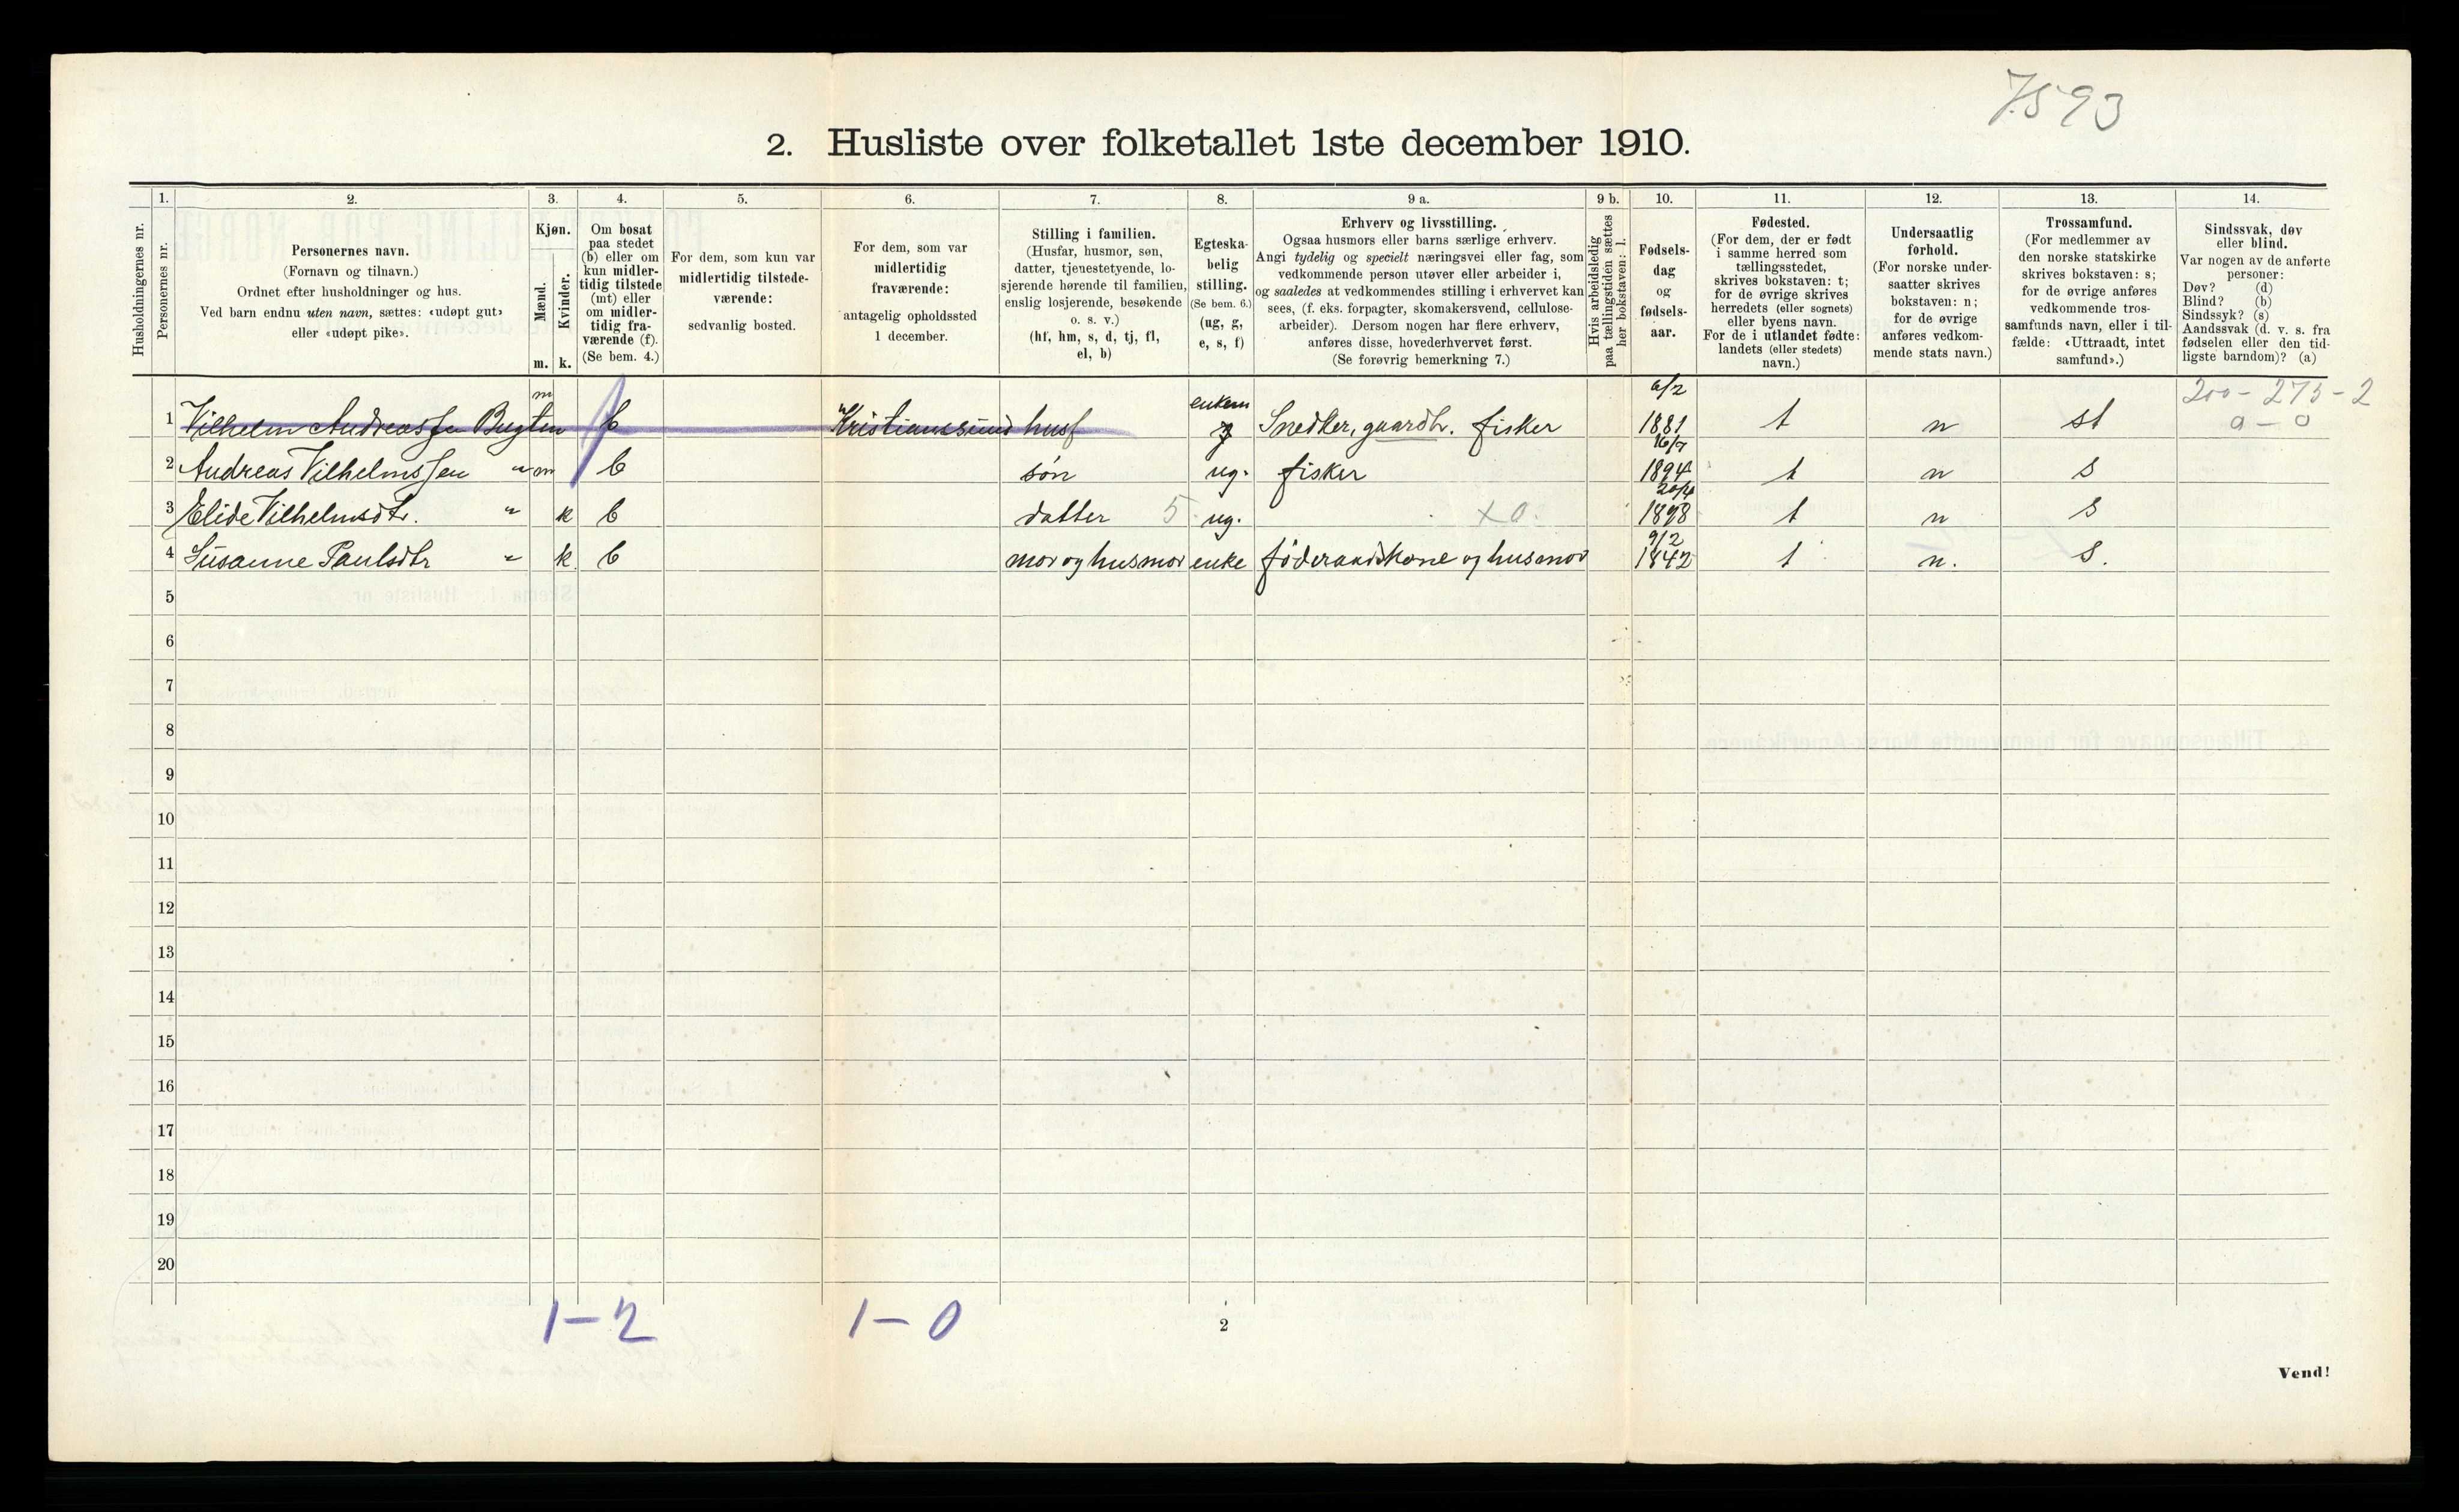 7593
2. Husliste over folketallet 1ste december 1910.
Husholdningernes nr.
1.
Personernes nr.
2.
Personernes navn.
(Fornavn og tilnavn.)
Ordnet efter husholdninger og hus.
Ved barn endnu uten navn, sættes: «udøpt gut»
eller «udøpt pike».
3.
Kjøn.
Mænd.
m.
Kvinder.
k.
4.
Om bosat
paa stedet
(b) eller om
kun midler-
tidig tilstede
(mt) eller
om midler-
tidig fra-
værende (f).
(Se bem. 4.)
5.
For dem, som kun var
midlertidig tilstede-
værende:
sedvanlig bosted.
6.
For dem, som var
midlertidig
fraværende:
antagelig opholdssted
1 december.
7.
Stilling i familien.
(Husfar, husmor, søn,
datter, tjenestetyende, lo-
sjerende hørende til familien,
enslig losjerende, besøkende
o. s. v.)
(hf, hm, s, d, tj, fl,
el, b)
8.
Egteska-
belig
stilling.
(Se bem. 6.)
(ug, g,
e, s, f)
9 a.
Erhverv og livsstilling.
Ogsaa husmors eller barns særlige erhverv.
Angi tydelig og specielt næringsvei eller fag, som
vedkommende person utøver eller arbeider i,
og saaledes at vedkommendes stilling i erhvervet kan
sees, (f. eks. forpagter, skomakersvend, cellulose-
arbeider). Dersom nogen har flere erhverv,
anføres disse, hovederhvervet først.
(Se forøvrig bemerkning 7.)
9 b.
Hvis arbeidsledig
paa tællingstiden sættes
her bokstaven: l.
10.
Fødsels-
dag
og
fødsels-
aar.
11.
Fødested.
(For dem, der er født
i samme herred som
tællingsstedet,
skrives bokstaven: t;
for de øvrige skrives
herredets (eller sognets)
eller byens navn.
For de i utlandet fødte:
landets (eller stedets)
navn.)
12.
Undersaatlig
forhold.
(For norske under-
saatter skrives
bokstaven: n;
for de øvrige
anføres vedkom-
mende stats navn.)
13.
Trossamfund.
(For medlemmer av
den norske statskirke
skrives bokstaven: s;
for de øvrige anføres
vedkommende tros-
samfunds navn, eller i til-
fælde: «Uttraadt, intet
samfund».)
14.
Sindssvak, døv
eller blind.
Var nogen av de anførte
personer:
Døv? (d)
Blind? (b)
Sindssyk? (s)
Aandssvak (d. v. s. fra
fødselen eller den tid-
ligste barndom)? (a)
200 - 275 - 2
0 - 0
1 Vilhelm Andreassen Bugten m b Kristianssund husf enkem Snedker, gaardbr. fisker 6/2 1881 t n st
2 Andreas Vilhelmssen " m b søn ug. fisker 16/7 1894 t n s
3 Elide Vilhelmsdtr. " k b datter 5 ug. x 0. 20/4 1898 t n s
4 Susanne Paulsdtr " k. b mor og husmor enke føderaadskone og husmor 9/2 1842 t n. s.
5
6
7
8
9
10
11
12
13
14
15
16
17
18
19
20
1 - 2 1 - 0
2
Vend!